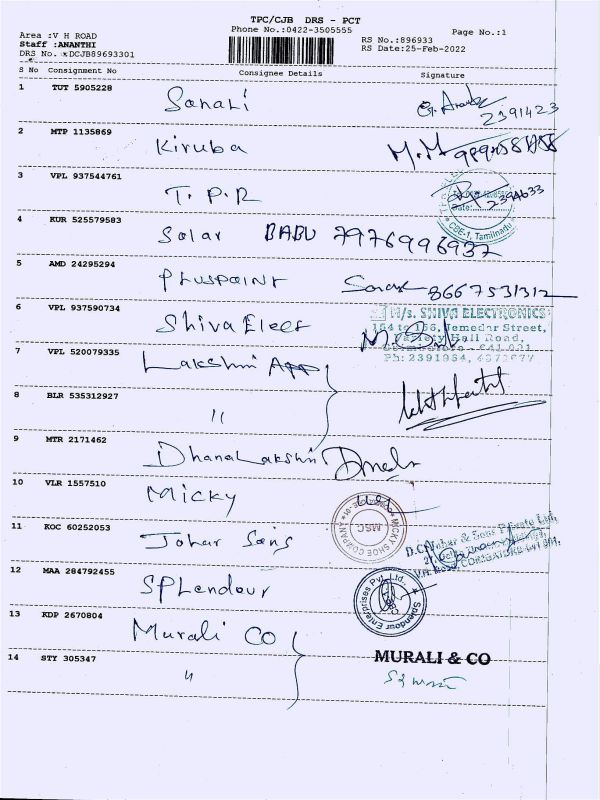 TPC/CJB DRS - PCT
Phone No.:0422-3505555
Area :V H ROAD
Staff :ANANTHI
DRS No. :xDCJB89693301
RS No.:896933
RS Date:25-Feb-2022
Page No.:1
S No Consignment No Consignee Details Signature
1 TUT 5905228 Sonali 2391423
2 MTP 1135869 Kiruba M.M
3 VPL 937544761 T.P.R 2394633
CBE-1, Tamilnadu
4 KUR 525579583 Solar BABU 7976996937
5 AMD 24295294 Pluspoint 8667531312
6 VPL 937590734 Shiva Elees
M/s. SHIVA ELECTRONICS
154 to 156, Jemedar Street,
Variety Hall Road,
Ph: 2391954, 4372977
7 VPL 520079335 Lakshmi App
8 BLR 535312927 "
9 MTR 2171462 DhanaLakshmi
10 VLR 1557510 Micky
MICKY SHOE COMPANY
MSC
11 KOC 60252053 Johar Sons
D.C. Johar & Sons Private Ltd.,
COIMBATORE-641 001.
12 MAA 284792455 SPLendour
Splendour Enterprises Pvt. Ltd.,
13 KDP 2670804 Murali CO
MURALI & CO
14 STY 305347 "